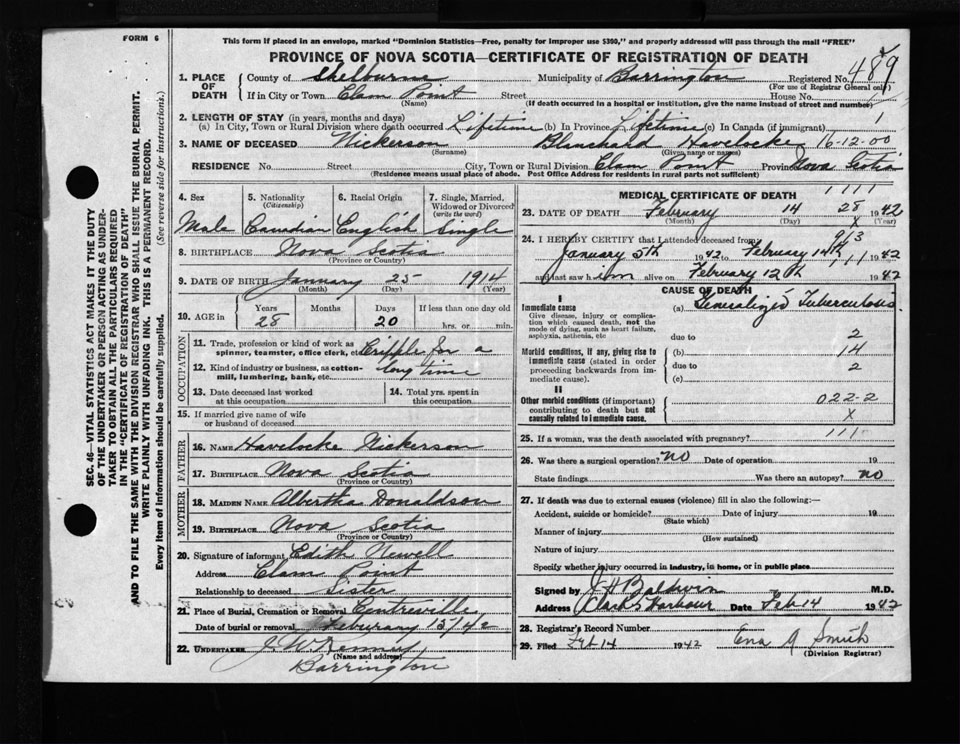 FORM 6
This form if placed in an envelope, marked "Dominion Statistics—Free, penalty for improper use $300," and properly addressed will pass through the mail "FREE"
PROVINCE OF NOVA SCOTIA—CERTIFICATE OF REGISTRATION OF DEATH
489
1. PLACE OF DEATH
County of Shelburne Municipality of Barrington Registered No.
(For use of Registrar General only)
If in City or Town Clam Point Street House No.
(Name) (If death occurred in a hospital or institution, give the name instead of street and number)
2. LENGTH OF STAY (in years, months and days)
(a) In City, Town or Rural Division where death occurred Lifetime (b) In Province Lifetime (c) In Canada (if immigrant) 1
3. NAME OF DECEASED Nickerson Blanchard Havelocke 16-12-00
(Surname) (Given name or names)
RESIDENCE No. Street City, Town or Rural Division Clam Point Province Nova Scotia
(Residence means usual place of abode. Post Office Address for residents in rural parts not sufficient)
4. Sex
Male
5. Nationality
(Citizenship)
Canadian
6. Racial Origin
English
7. Single, Married,
Widowed or Divorced
(write the word)
Single
8. BIRTHPLACE Nova Scotia
(Province or Country)
9. DATE OF BIRTH January 25 1914
(Month) (Day) (Year)
10. AGE in
Years Months Days If less than one day
28 20 hrs. or min.
OCCUPATION
11. Trade, profession or kind of work as
spinner, teamster, office clerk, etc. Cripple for a
12. Kind of industry or business, as cotton-
mill, lumbering, bank, etc. long time
13. Date deceased last worked
at this occupation
14. Total yrs. spent in
this occupation
15. If married give name of wife
or husband of deceased
FATHER
16. NAME Havelocke Nickerson
17. BIRTHPLACE Nova Scotia
(Province or Country)
MOTHER
18. MAIDEN NAME Albertha Donaldson
19. BIRTHPLACE Nova Scotia
(Province or Country)
20. Signature of informant Edith Newell
Address Clam Point
Relationship to deceased Sister
21. Place of Burial, Cremation or Removal Centreville
Date of burial or removal Feburary 15/42
22. UNDERTAKER J. W. Kenney
(Name and address)
Barrington
1111
MEDICAL CERTIFICATE OF DEATH
23. DATE OF DEATH February 14 28 1942
(Month) (Day) X (Year)
24. I HEREBY CERTIFY that I attended deceased from 9/3
January 5th 1942 to February 14th 111 1942
and last saw him alive on February 12th 1942
CAUSE OF DEATH
I
Immediate cause
Give disease, injury or complica-
tion which caused death, not the
mode of dying, such as heart failure,
asphyxia, asthenia, etc
(a) Generalized Tuberculosis
due to 2
Morbid conditions, if any, giving rise to
immediate cause (stated in order
proceeding backwards from im-
mediate cause).
(b) 14
due to 2
(c)
II
Other morbid conditions (if important)
contributing to death but not
causally related to immediate cause.
022-2
X
25. If a woman, was the death associated with pregnancy? 111
26. Was there a surgical operation? No Date of operation 19
State findings Was there an autopsy? No
27. If death was due to external causes (violence) fill in also the following:—
Accident, suicide or homicide? Date of injury 19
(State which)
Manner of injury
(How sustained)
Nature of injury
Specify whether injury occurred in industry, in home, or in public place
Signed by J H Baldwin M.D.
Address Clark's Harbour Date Feb 14 1942
28. Registrar's Record Number
29. Filed Feb 14 1942 Ena A Smith
(Division Registrar)
SEC. 46—VITAL STATISTICS ACT MAKES IT THE DUTY
OF THE UNDERTAKER OR PERSON ACTING AS UNDER-
TAKER TO OBTAIN ALL THE PARTICULARS REQUIRED
IN THE "CERTIFICATE OF REGISTRATION OF DEATH"
AND TO FILE THE SAME WITH THE DIVISION REGISTRAR WHO SHALL ISSUE THE BURIAL PERMIT.
WRITE PLAINLY WITH UNFADING INK. THIS IS A PERMANENT RECORD.
Every item of information should be carefully supplied. (See reverse side for instructions.)